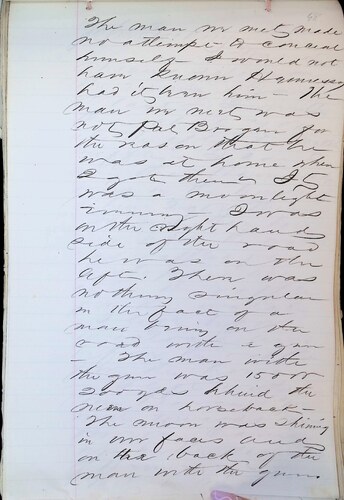 The man we met made
no attempt to conceal
himself - I would not
have known Hennessy
had it been him - The
man we met was
not Phil Brogan for
the reason that he
was at home when
I got there - It
was a moonlight
evening - I was
on the right hand
side of the road
he was on the
left. There was
nothing singular
in the fact of a
man being on the
road with a gun
- The man with
the gun was 150 or
200 yds behind the
men on horseback -
The moon was shining
in our faces and
on the back of the
man with the gun.